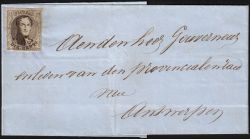 Aen den heer Gouverneur
en leden van den provincialen raed
van
Antwerpen